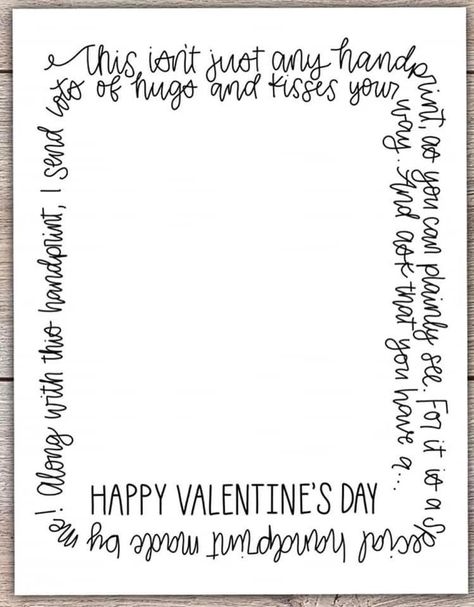 This isn't just any handprint,
as you can plainly see. For it is a
special handprint made by
me! Along with this handprint, I send
lots of hugs and kisses your
way. And ask that you have a...
HAPPY VALENTINE'S DAY